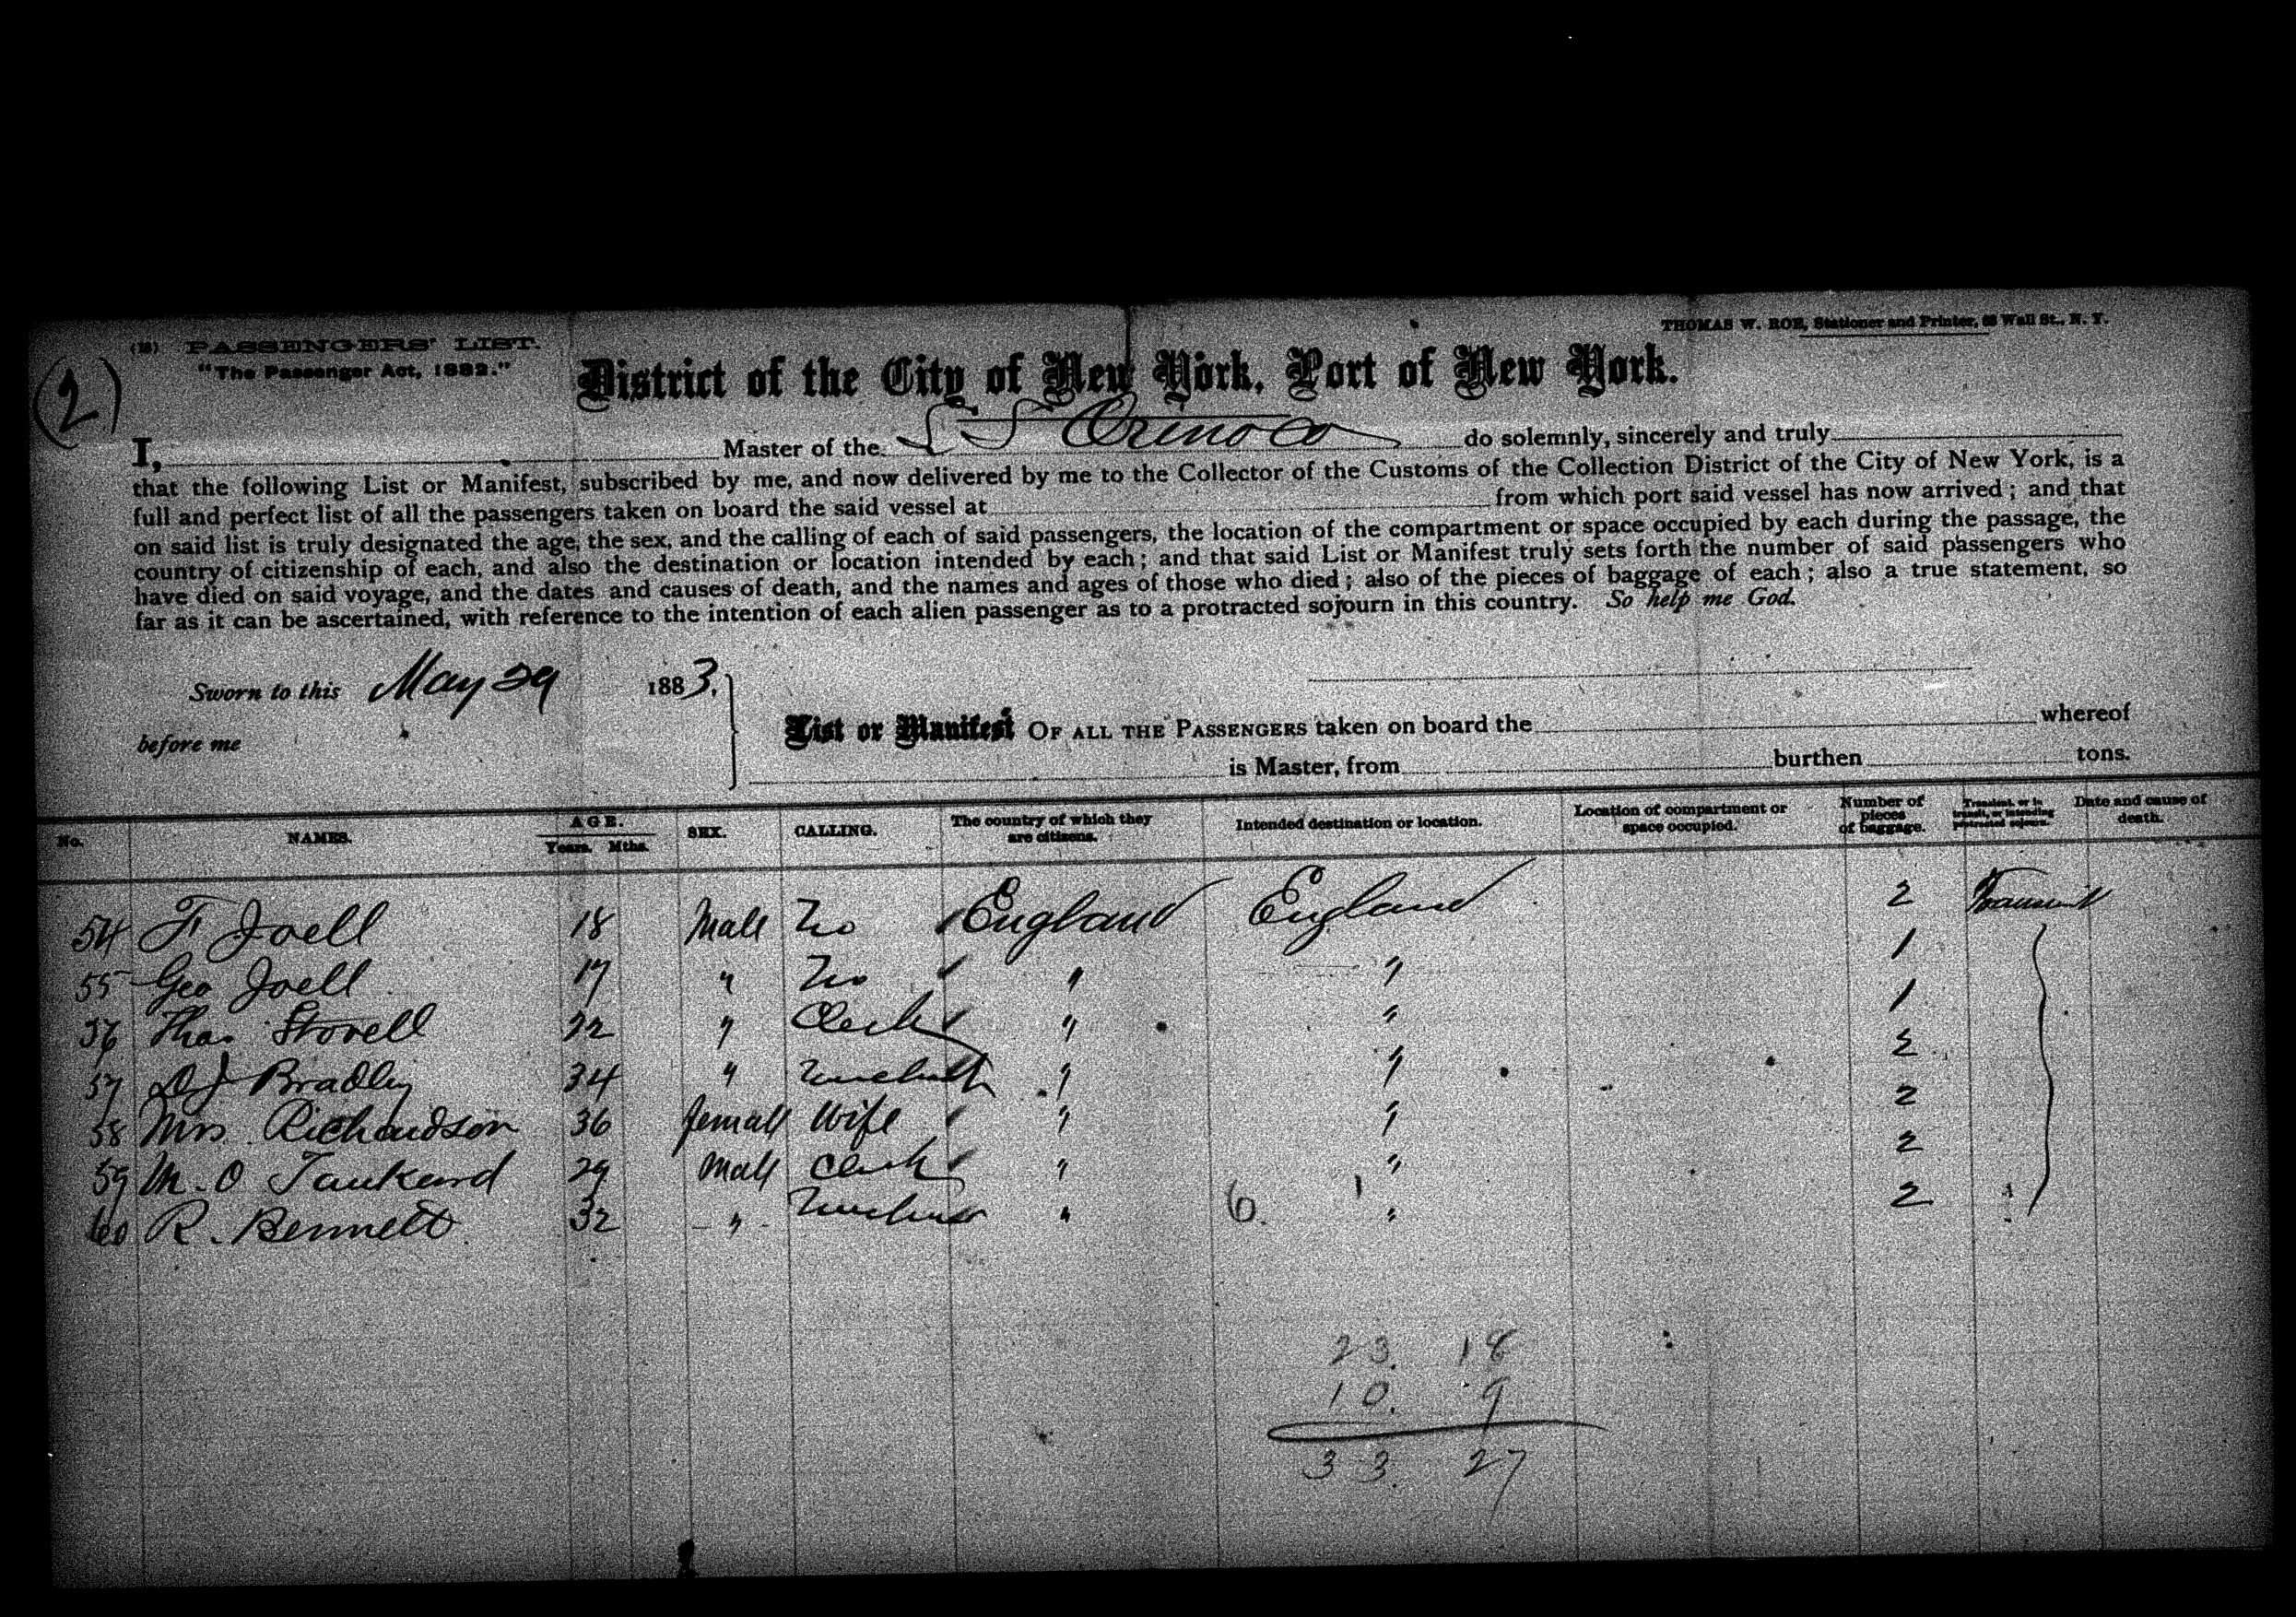 (18) PASSENGERS' LIST.
"The Passenger Act, 1882."
THOMAS W. ROE, Stationer and Printer, Wall St., N. Y.
(2)
District of the City of New York, Port of New York.
I, Master of the SS Orinoco do solemnly, sincerely and truly
that the following List or Manifest, subscribed by me, and now delivered by me to the Collector of the Customs of the Collection District of the City of New York, is a
full and perfect list of all the passengers taken on board the said vessel at from which port said vessel has now arrived; and that
on said list is truly designated the age, the sex, and the calling of each of said passengers, the location of the compartment or space occupied by each during the passage, the
country of citizenship of each, and also the destination or location intended by each; and that said List or Manifest truly sets forth the number of said passengers who
have died on said voyage, and the dates and causes of death, and the names and ages of those who died; also of the pieces of baggage of each; also a true statement, so
far as it can be ascertained, with reference to the intention of each alien passenger as to a protracted sojourn in this country. So help me God.
Sworn to this May 29 1883.
before me
List or Manifest OF ALL THE PASSENGERS taken on board the whereof
is Master, from burthen tons.
No. NAMES. AGE. Years. Mths. SEX. CALLING. The country of which they are citizens. Intended destination or location. Location of compartment or space occupied. Number of pieces of baggage. Transient, or in transit, or intending protracted sojourn. Date and cause of death.
54 F Joell 18 Male No England England 2 Transient
55 Geo Joell 17 " No " " 1
56 Thos Stovell 22 " Clerk " " 1
57 DJ Bradley 34 " " " 2
58 Mrs Richardson 36 female Wife " " 2
59 M. O Tankard 29 Male Clerk " " 2
60 R. Bennett 32 " " 6. " 2
23. 18
10. 9
33. 27